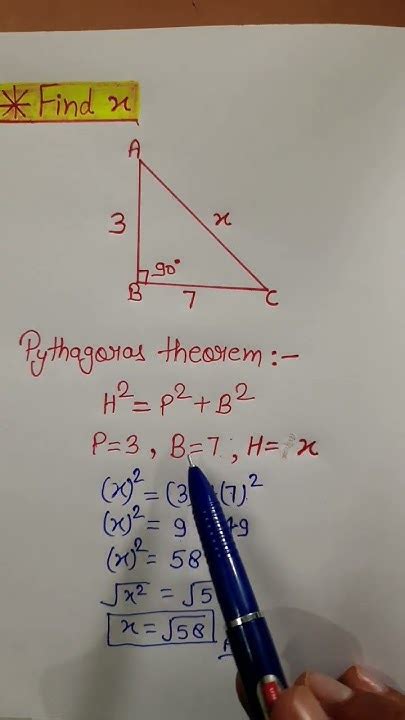 * Find x
A
3
x
90°
B
7
C
Pythagoras theorem :-
H² = P² + B²
P = 3 , B = 7 ; H = x
(x)² = (3) (7)²
(x)² = 9 49
(x)² = 58
√x² = √5
x = √58